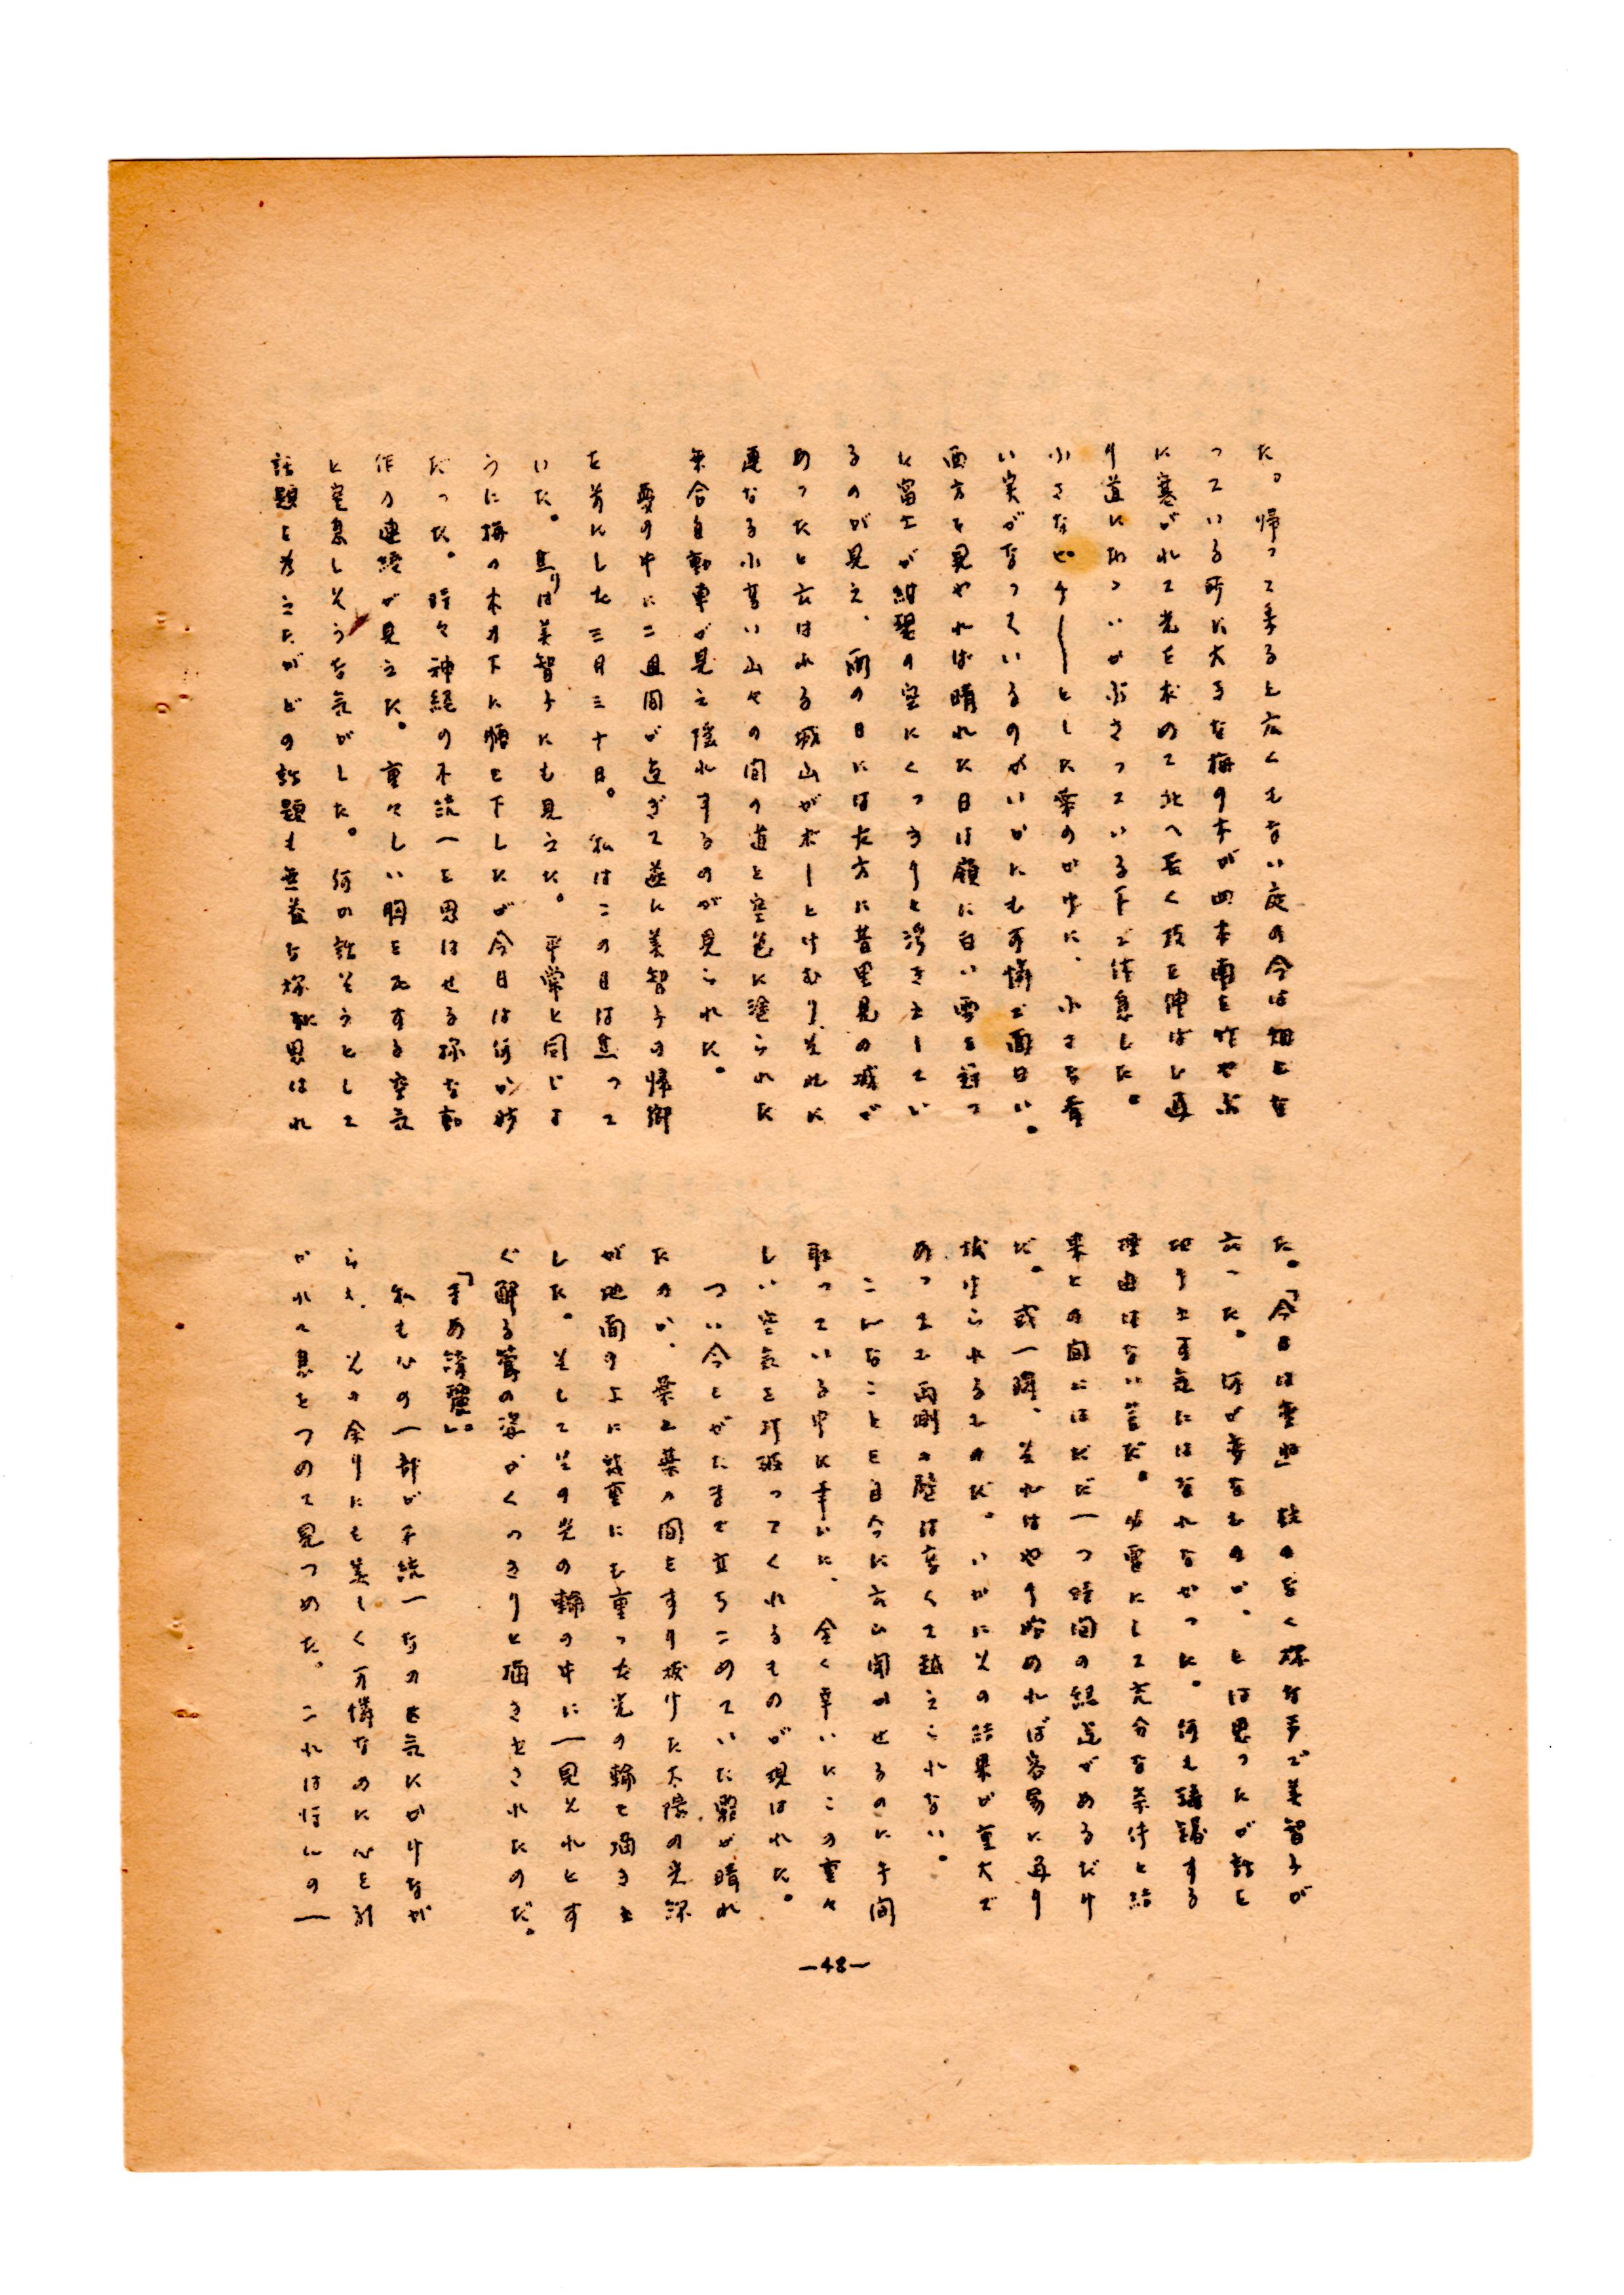 た。帰って来ると広くもない庭の今は畑とな
っている所に大きな梅の木が四本南を竹やぶ
に塞がれて光を求めて北へ長く枝を伸ばし通
り道にわっいかぶさっている下で休息した。
小さなピチーーとした葉のかげに、小さな青
い実がなっているのがいかにも可憐で面白い。
西方を見やれば晴れた日は嶺に白い雪を冠っ
た富士が紺碧の空にくっきりと浮き立してい
るのが見え、雨の日には左方に昔里見の城が
あったと云はれる城山がボーとけむり、それに
連なる小高い山々の間の道を空色に塗られた
乗合自動車が見え隠れするのが見られた。
憂の中に二週間が過ぎて遂に美智子の帰郷
を前にした三月三十日。私はこの日は焦って
いた。焦りは美智子にも見えた。平常と同じよ
うに梅の木の下に腰を下したが今日は何か妙
だった。時々神経の不統一を思はせる様な動
作の連続が見えた。重々しい胸を圧する空気
に窒息しそうな気がした。何か話そうとして
話題を考えたがどの話題も無益な様に思はれ
た。「今日は変ね」銃のなく様な声で美智子が
云った。何が変なものか、とは思ったが話を
他そ士可気にはなれなかった。何も躊躇する
理由はない筈だ。必要にして充分な条件と結
果との間にはただ一つ時間の経過があるだけ
だ。或一瞬、それはやり始めれば容易に通り
抜けられるものだ。いかにその結果が重大で
あっても両側の壁は高くて越えられない。
こんなことを自分に云い聞かせるのに手間
取っている中に幸いに、全く幸いにこの重々
しい空気を打破ってくれるものが現はれた。
つい今しがたまで立ちこめていた霧が晴れ
たのか、葉と葉の間をすり抜けた太陽の光線
が地面の上に幾重にも重った光の輪を描き出
した。そしてその光の輪の中に一見それとす
ぐ解る鶯の姿がくっきりと描き出されたのだ。
「まあ綺麗」。
私も心の一部が不統一なのを気にかけなが
らも、その余りにも美しく可憐なのに心を引
かれて息をつめて見つめた。これは行んの一
—48—